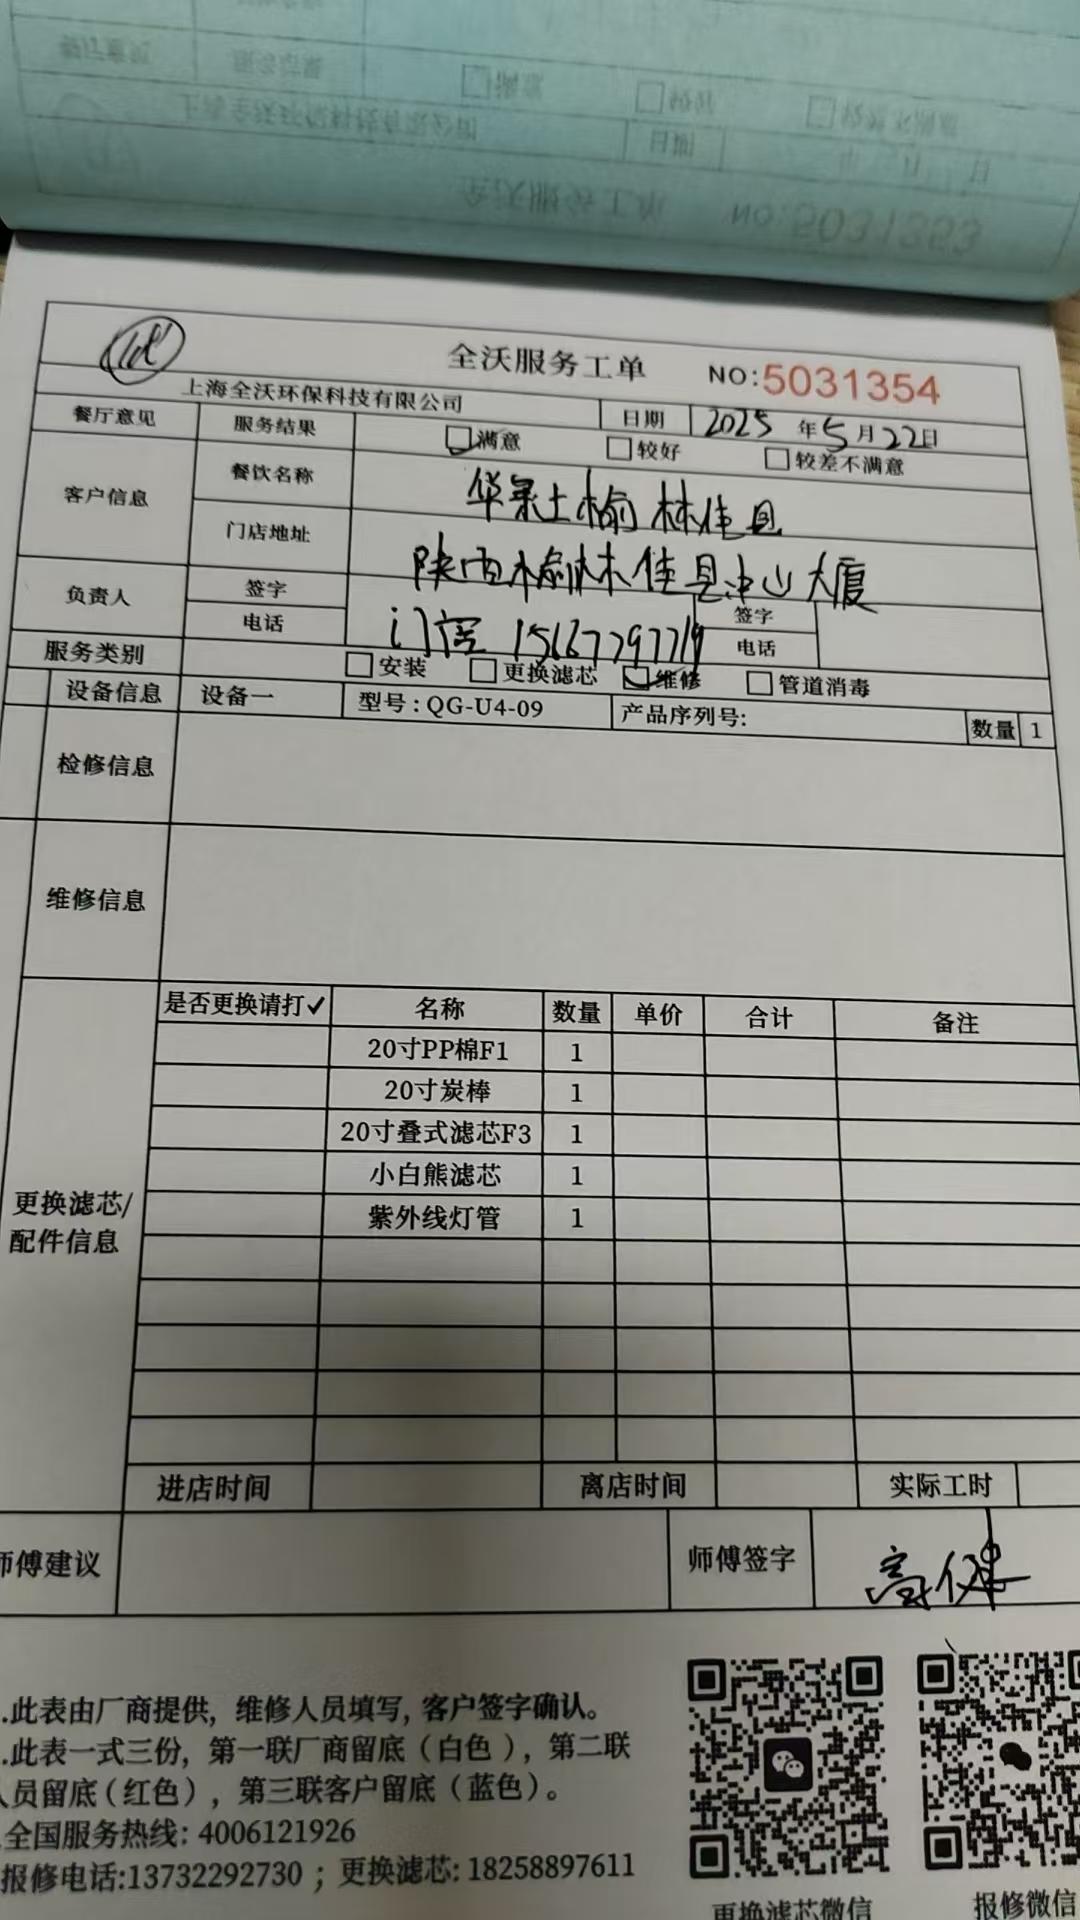 全沃服务工单 NO:5031354
上海全沃环保科技有限公司 日期 2025 年 5 月 22 日
餐厅意见 服务结果 满意 较好 较差不满意
客户信息 餐饮名称 华莱士榆林佳县
门店地址 陕西榆林佳县中山大厦
负责人 签字 签字
电话 15667797719 电话
服务类别 安装 更换滤芯 维修 管道消毒
设备信息 设备一 型号：QG-U4-09 产品序列号: 数量 1
检修信息
维修信息
更换滤芯/
配件信息
是否更换请打✓ 名称 数量 单价 合计 备注
20寸PP棉F1 1
20寸炭棒 1
20寸叠式滤芯F3 1
小白熊滤芯 1
紫外线灯管 1
进店时间 离店时间 实际工时
师傅建议 师傅签字 高健
.此表由厂商提供，维修人员填写，客户签字确认。
.此表一式三份，第一联厂商留底（白色），第二联
人员留底（红色），第三联客户留底（蓝色）。
.全国服务热线: 4006121926
报修电话:13732292730 ；更换滤芯: 18258897611
更换滤芯微信 报修微信